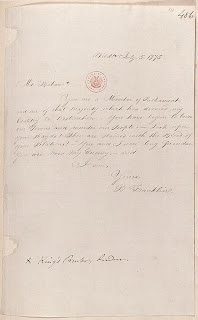 July 5. 1775
Mr. Strahan *
You are a Member of Parliament,
and one of that Majority which has doomed my
Country to Destruction. You have begun to burn
our Towns and murder our People. Look upon
your Hands! They are stained with the Blood of
your Relations! You and I were long Friends:
You are now my Enemy, and
I am,
Yours,
B Franklin
King's Printer, London.